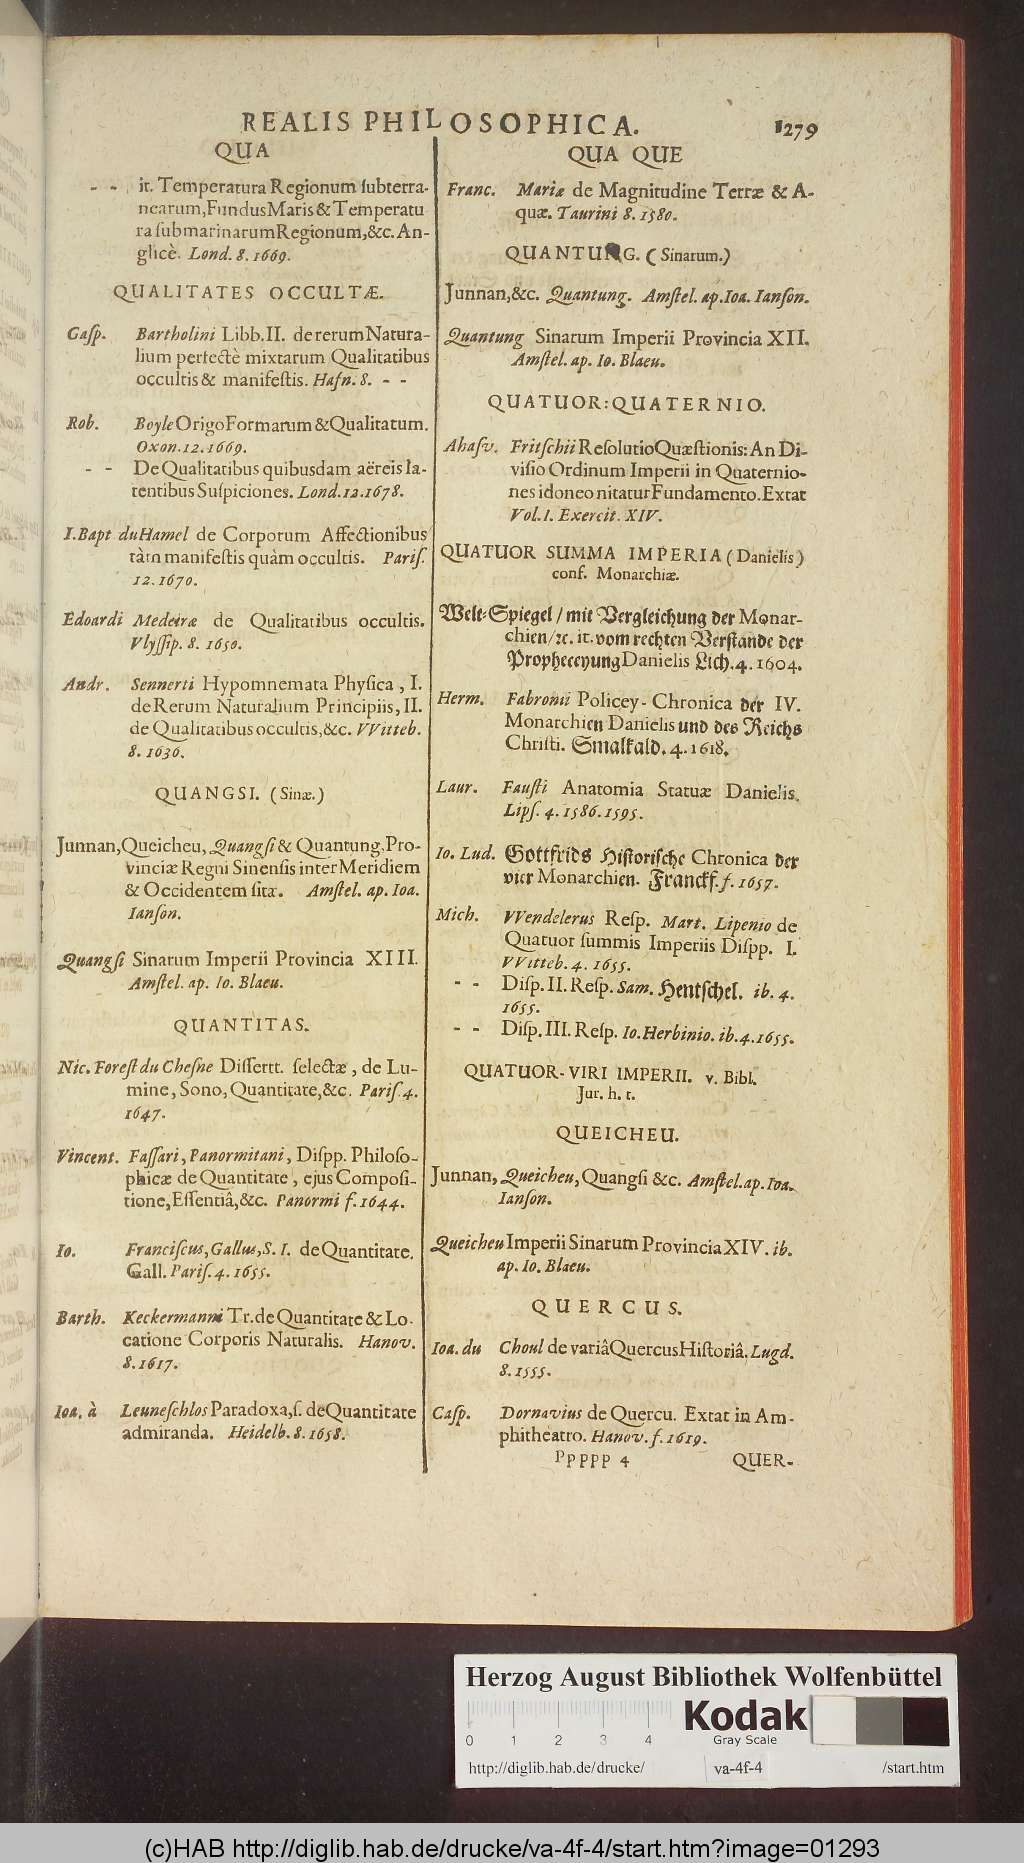 REALIS PHILOSOPHICA. 1279
QUA
- - it. Temperatura Regionum ſubterra-
nearum, Fundus Maris & Temperatu
ra ſubmarinarum Regionum, &c. An-
glicè. Lond. 8. 1669.
QUALITATES OCCULTÆ.
Gaſp. Bartholini Libb. II. de rerum Natura-
lium perfectè mixtarum Qualitatibus
occultis & manifeſtis. Hafn. 8. - -
Rob. Boyle Origo Formarum & Qualitatum.
Oxon. 12. 1669.
- - De Qualitatibus quibusdam aëreis la-
tentibus Suſpiciones. Lond. 12. 1678.
I. Bapt du Hamel de Corporum Affectionibus
tàm manifeſtis quàm occultis. Pariſ.
12. 1670.
Edoardi Medeiræ de Qualitatibus occultis.
Vlyſſip. 8. 1650.
Andr. Sennerti Hypomnemata Phyſica, I.
de Rerum Naturalium Principiis, II.
de Qualitatibus occultis, &c. VVitteb.
8. 1636.
QUANGSI. (Sinæ.)
Junnan, Queicheu, Quangſi & Quantung. Pro-
vinciæ Regni Sinenſis inter Meridiem
& Occidentem ſitæ. Amſtel. ap. Ioa.
Ianſon.
Quangſi Sinarum Imperii Provincia XIII.
Amſtel. ap. Io. Blaeu.
QUANTITAS.
Nic. Foreſt du Cheſne Diſſertt. ſelectæ, de Lu-
mine, Sono, Quantitate, &c. Pariſ. 4.
1647.
Vincent. Faſſari, Panormitani, Diſpp. Philoſo-
phicæ de Quantitate, ejus Compoſi-
tione, Eſſentiâ, &c. Panormi f. 1644.
Io. Franciſcus, Gallus, S. I. de Quantitate.
Gall. Pariſ. 4. 1655.
Barth. Keckermanni Tr. de Quantitate & Lo-
catione Corporis Naturalis. Hanov.
8. 1617.
Ioa. à Leuneſchlos Paradoxa, ſ. de Quantitate
admiranda. Heidelb. 8. 1658.
QUA QUE
Franc. Mariæ de Magnitudine Terræ & A-
quæ. Taurini 8. 1580.
QUANTUNG. (Sinarum.)
Junnan, &c. Quantung. Amſtel. ap. Ioa. Ianſon.
Quantung Sinarum Imperii Provincia XII.
Amſtel. ap. Io. Blaeu.
QUATUOR: QUATERNIO.
Ahaſv. Fritſchii Reſolutio Quæſtionis: An Di-
viſio Ordinum Imperii in Quaternio-
nes idoneo nitatur Fundamento. Extat
Vol. I. Exercit. XIV.
QUATUOR SUMMA IMPERIA (Danielis)
conf. Monarchiæ.
Welt-Spiegel / mit Vergleichung der Monar-
chien/ ꝛc. it. vom rechten Verſtande der
Propheceyung Danielis Lich. 4. 1604.
Herm. Fabronii Policey-Chronica der IV.
Monarchien Danielis und des Reichs
Chriſti. Smalkald. 4. 1618.
Laur. Fauſti Anatomia Statuæ Danielis.
Lipſ. 4. 1586. 1595.
Io. Lud. Gottfrids Hiſtoriſche Chronica der
vier Monarchien. Franckf. f. 1657.
Mich. VVendelerus Reſp. Mart. Lipenio de
Quatuor ſummis Imperiis Diſpp. I.
VVitteb. 4. 1655.
- - Diſp. II. Reſp. Sam. Hentſchel. ib. 4.
1655.
- - Diſp. III. Reſp. Io. Herbinio. ib. 4. 1655.
QUATUOR-VIRI IMPERII. v. Bibl.
Jur. h. t.
QUEICHEU.
Junnan, Queicheu, Quangſi &c. Amſtel. ap. Ioa.
Ianſon.
Queicheu Imperii Sinarum Provincia XIV. ib.
ap. Io. Blaeu.
QUERCUS.
Ioa. du Choul de variâ Quercus Hiſtoriâ. Lugd.
8. 1555.
Caſp. Dornavius de Quercu. Extat in Am-
phitheatro. Hanov. f. 1619.
Ppppp 4 QUER-
Herzog August Bibliothek Wolfenbüttel
0 1 2 3 4
Kodak
Gray Scale
http://diglib.hab.de/drucke/ va-4f-4 /start.htm
(c)HAB http://diglib.hab.de/drucke/va-4f-4/start.htm?image=01293